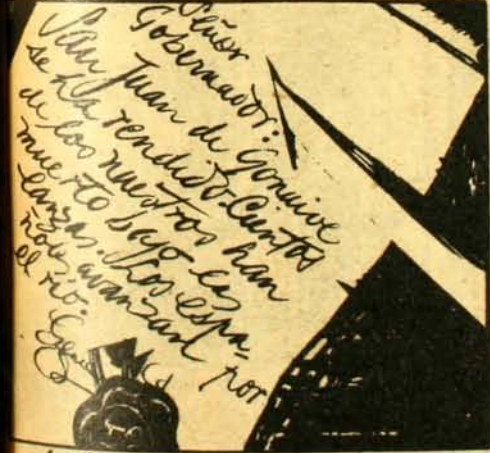 Señor
Gobernador:
San Juan de Gonaive
se ha rendido. Cientos
de los nuestros han
muerto bajo las
lanzas. Los espa-
ñoles avanzan por
el río.